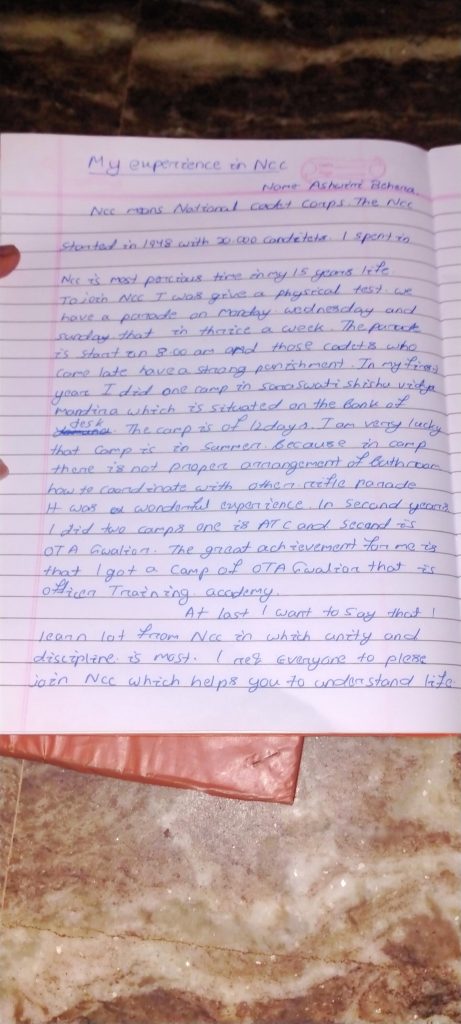 My euperience in Ncc
Name Ashwini Behera
Ncc means National Cadet Corps. The Ncc
Started in 1948 with 20.000 candidets. I spent in
Ncc is most porcious time in my 15 years life
To join Ncc I was give a physical test. we
have a parade on Monday wednesday and
sunday that in thrice a week. The parade
is start on 8:00 am and those cadets who
come late have a strong punishment. In my first
year I did one camp in saraswati shishu vidya
Mandira which is situated on the Bank of
desk
The camp is of 12 days. I am very lucky
that camp is in summer. Because in camp
there is not proper arrangement of bathroom
how to coordinate with other. rifle parade
It was a wonderful experience. In second years
I did two camps one is ATC and second is
OTA Gwalior. The great achievement for me is
that I got a camp of OTA Gwalior that is
officer Training academy.
At last I want to say that I
learn lot from Ncc in which unity and
discipline is most. I req everyone to plese
join Ncc which helps you to understand life.